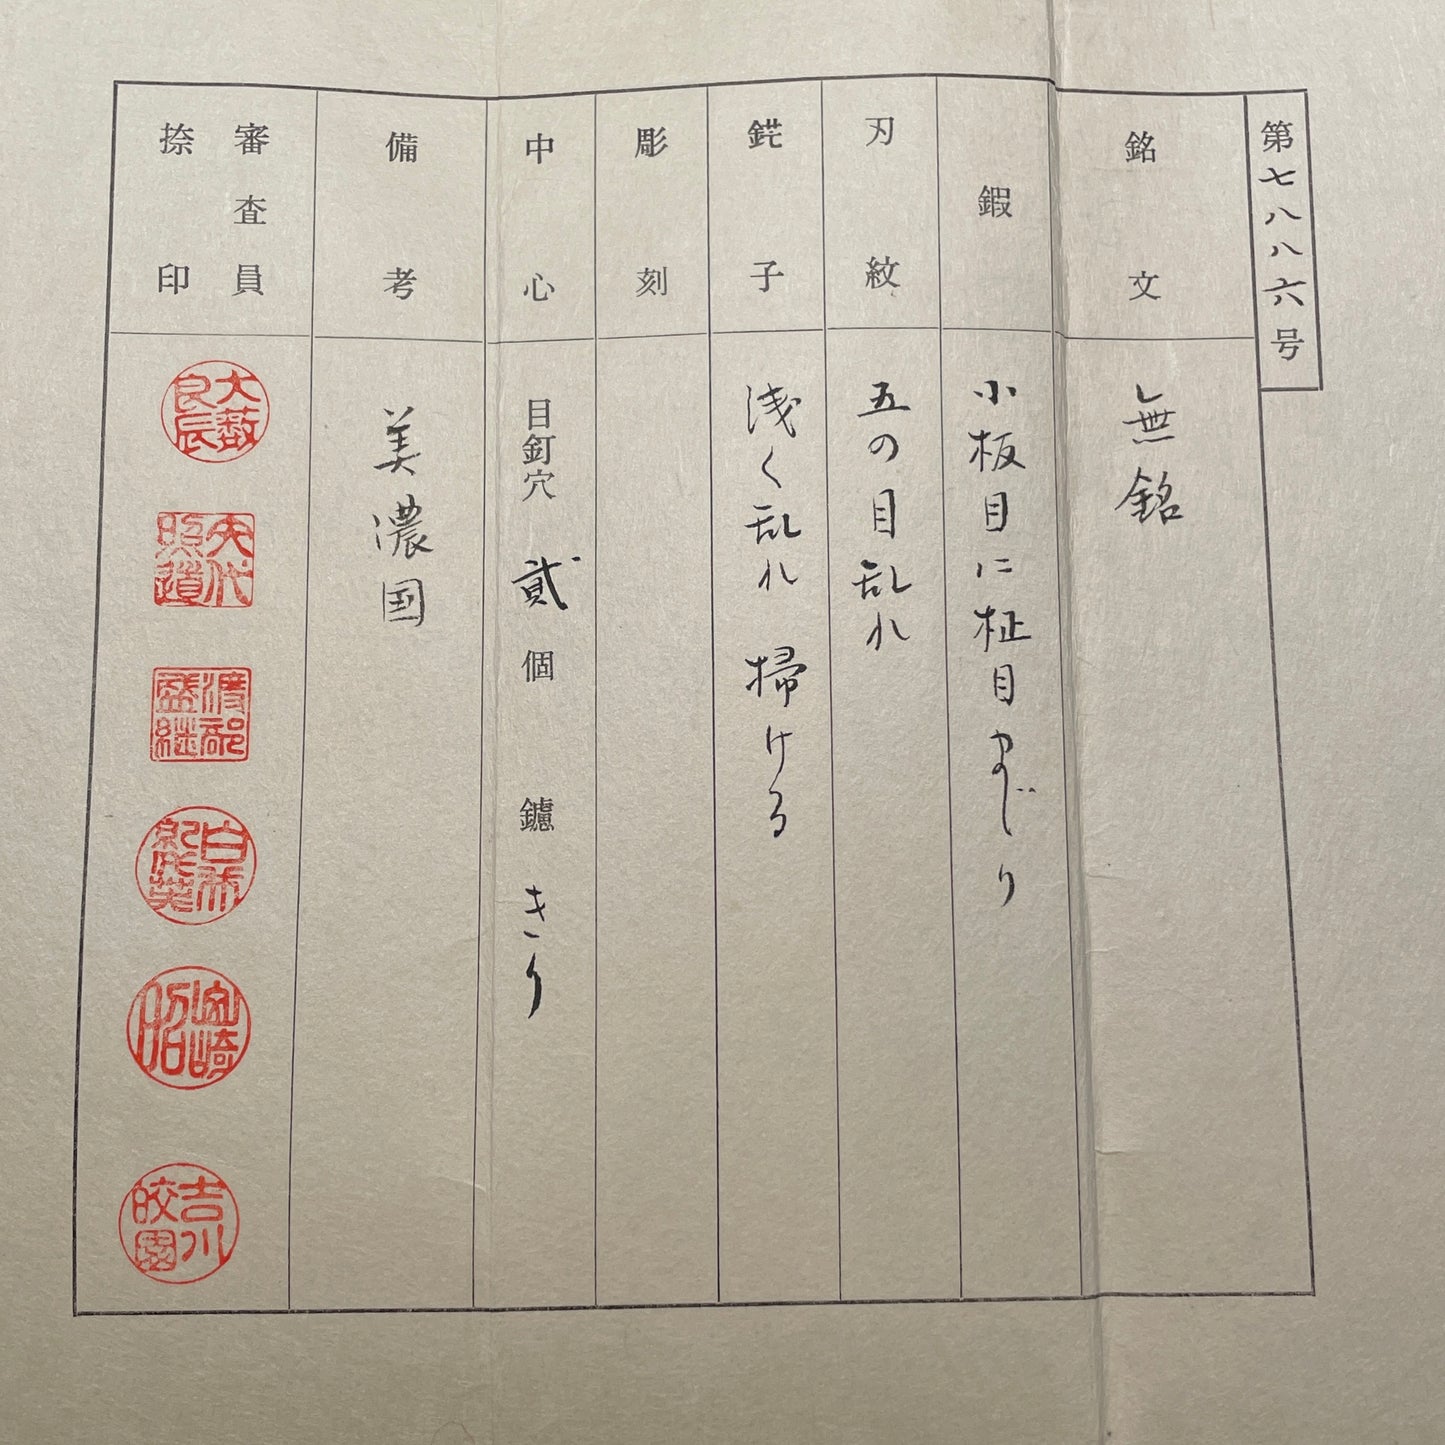 第七八八六号
銘文
無銘
鍜
小板目に柾目まじり
刃紋
五の目乱れ
鋩子
浅く乱れ 掃ける
彫刻
中心
目釘穴 貳 個 鑢 きり
備考
美濃国
審査員
捺印
大薮
良辰
大代
照道
渡部
盛継
吉川
皎園